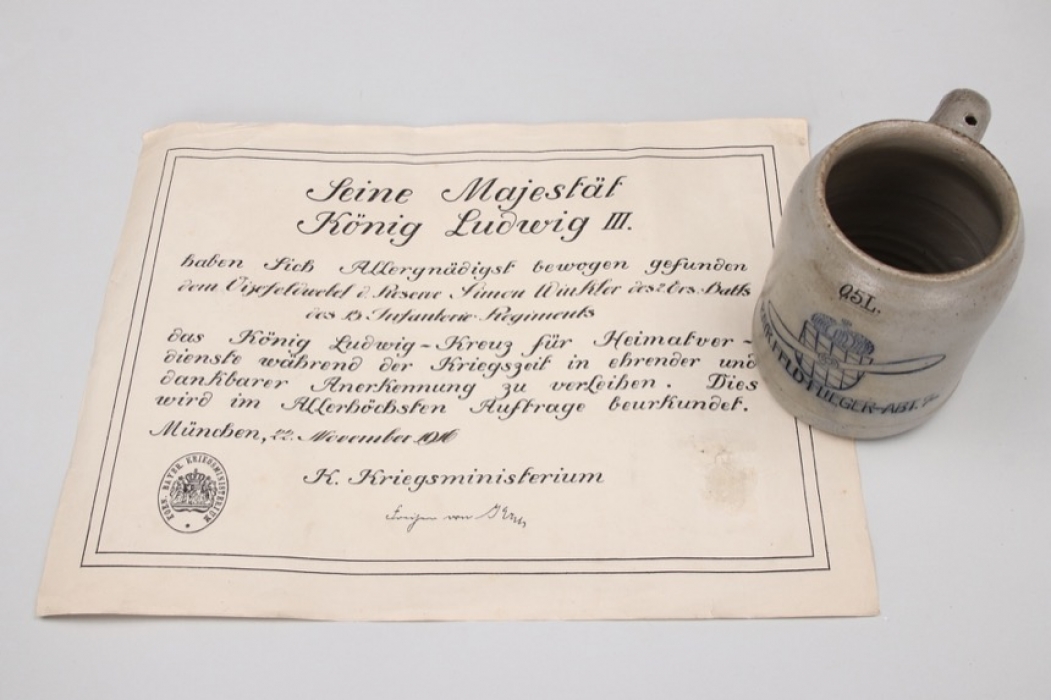 Seine Majestät
König Ludwig III.
haben Sich Allergnädigst bewogen gefunden
dem Vizefeldwebel d. Reserve Simon Winkler des 2. Ers. Batls
des 15 Infanterie-Regiments
das König Ludwig-Kreuz für Heimatver-
dienste während der Kriegszeit in ehrender und
dankbarer Anerkennung zu verleihen. Dies
wird im Allerhöchsten Auftrage beurkundet.
München, 22. November 1916
K. Kriegsministerium
KGL. BAYER. KRIEGSMINISTERIUM
Freiherr von
0,5 L.
FELDFLIEGER-ABT.